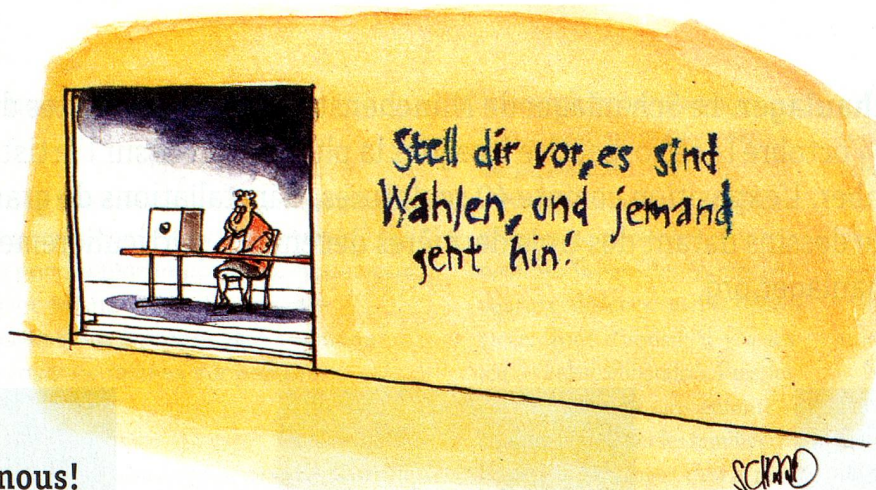 Stell dir vor, es sind
Wahlen, und jemand
geht hin!
SCHAAD
nous!